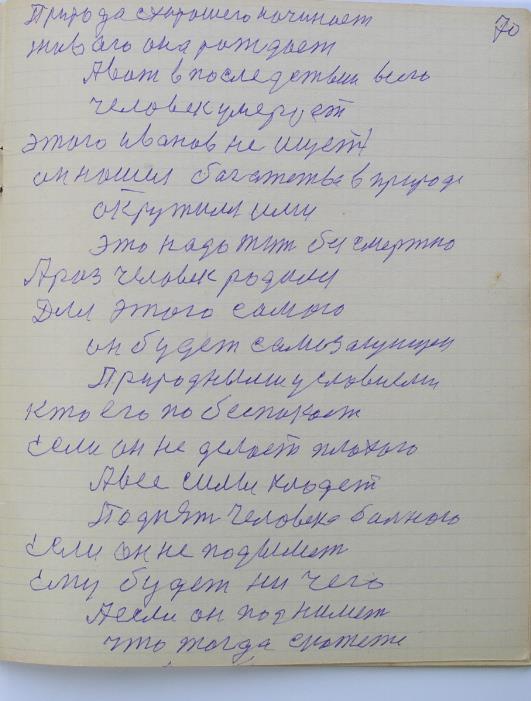 70
Природа схорошего начинает
живого она рождает
Авот в последствии всего
человек умерует
этого иванов не ищет
он нашел багатства в природе
окружили ими
это надо жит бессмертно
А раз человек родили
Для этого самого
он будет самозащищен
Природными условиеми
кто его по беспокоет
Если он не делает плохого
Авсе силы кладет
Поднят человека балного
Если он не подымет
Ему будет ни чего
Аесли он поднимет
что тогда скажете